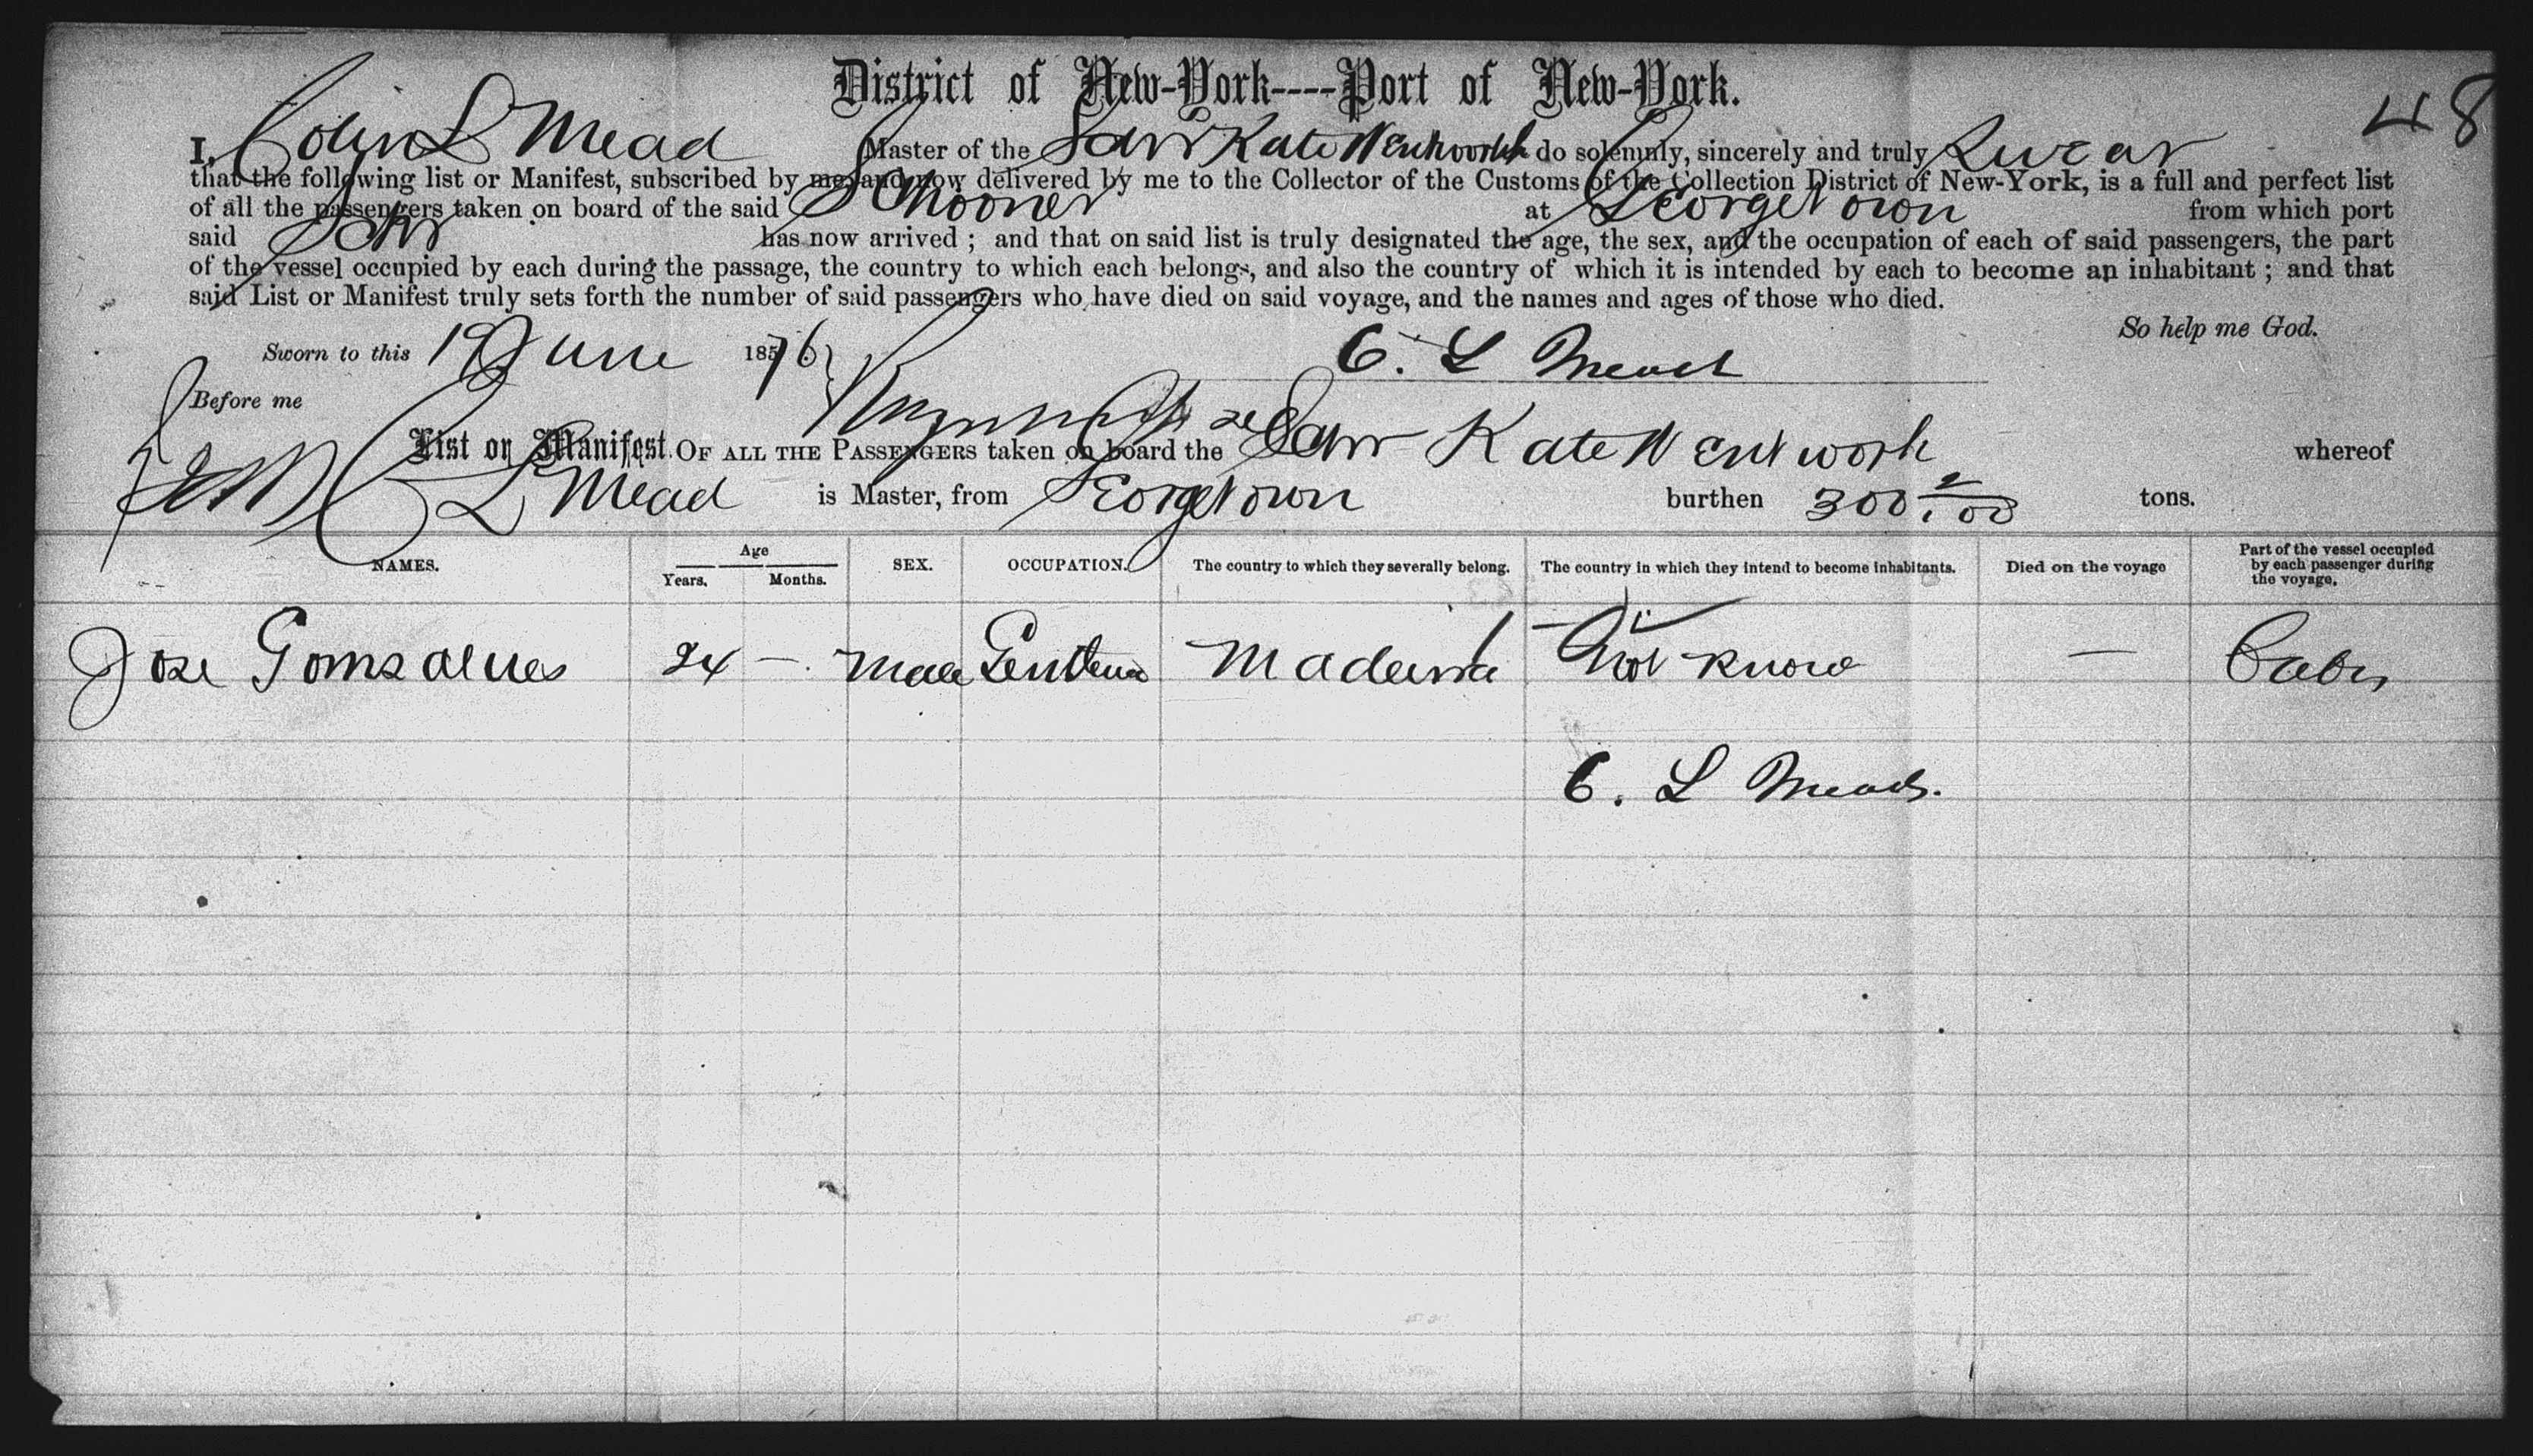 District of New-York----Port of New-York.
48
I, Colin L Mead Master of the Schr Kate Wentworth do solemnly, sincerely and truly Swear
that the following list or Manifest, subscribed by me, and now delivered by me to the Collector of the Customs of the Collection District of New-York, is a full and perfect list
of all the passengers taken on board of the said Schooner at Georgetown from which port
said Schr has now arrived ; and that on said list is truly designated the age, the sex, and the occupation of each of said passengers, the part
of the vessel occupied by each during the passage, the country to which each belongs, and also the country of which it is intended by each to become an inhabitant ; and that
said List or Manifest truly sets forth the number of said passengers who have died on said voyage, and the names and ages of those who died.
So help me God.
Sworn to this 19 June 1876 C. L Mead
Before me
List or Manifest OF ALL THE PASSENGERS taken on board the Schr Kate Wentworth whereof
C L Mead is Master, from Georgetown burthen 300 2/100 tons.
NAMES. Age Years. Months. SEX. OCCUPATION. The country to which they severally belong. The country in which they intend to become inhabitants. Died on the voyage Part of the vessel occupied by each passenger during the voyage.
Jose Gomsalves 24 — Male Madeira not know — Cabin
C. L Mead.